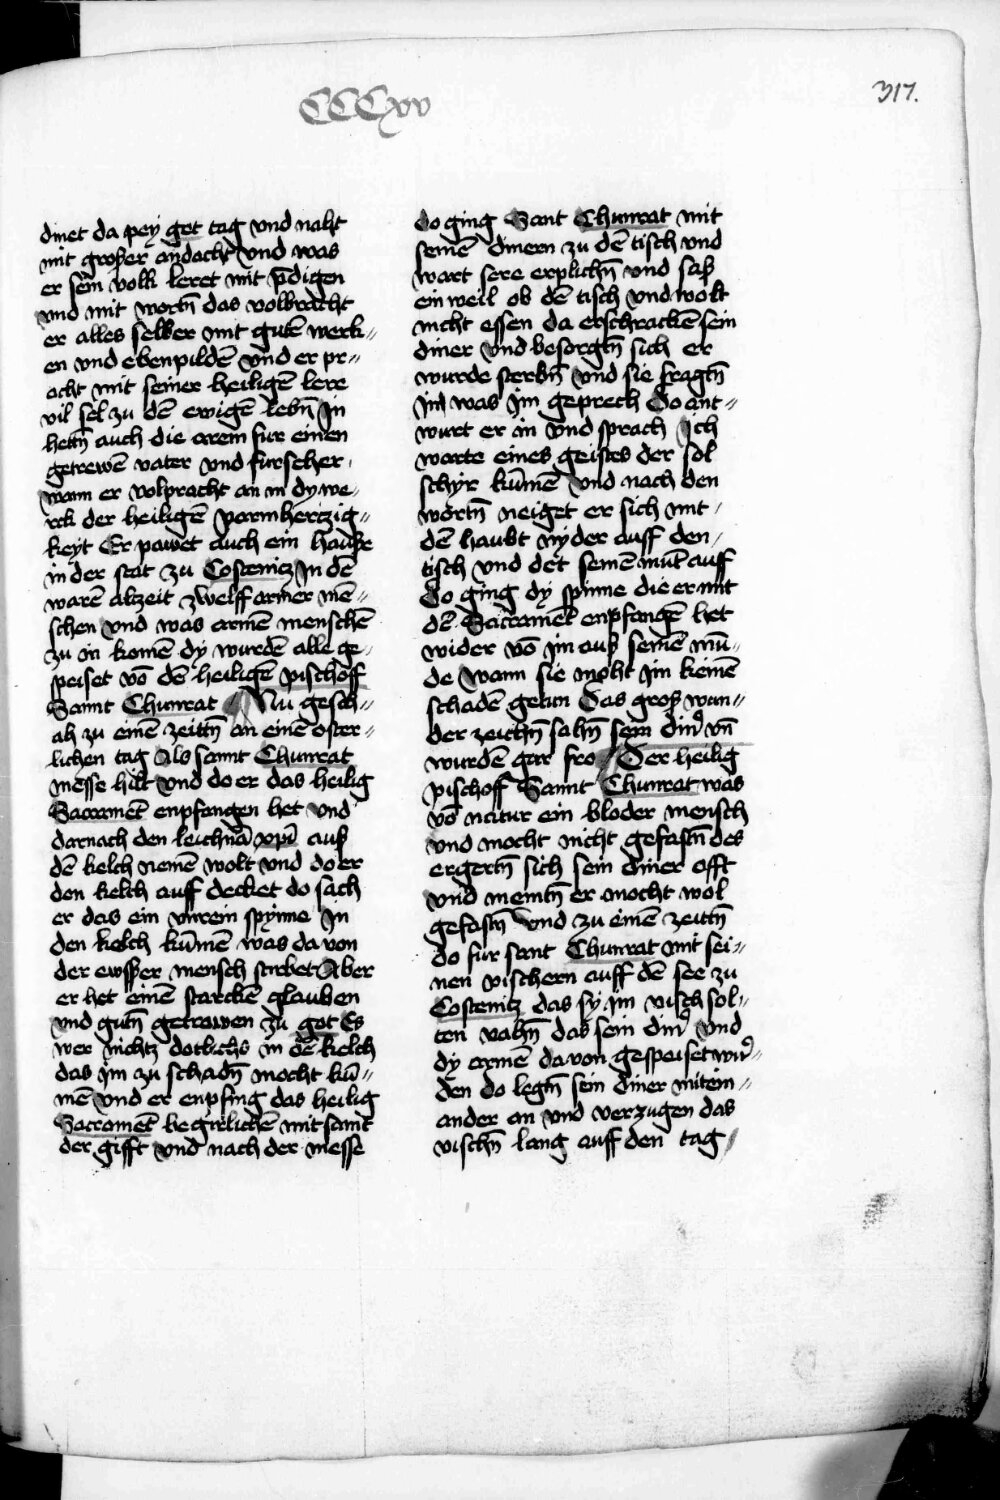 CCCxv
317.
dinet da pey got tag vnd naht
mit großer andacht vnd was
er sein volk leret mit p̄digen
vnd mit wortn̄ das volbracht
er alles selber mit gutē werk〃
en vnd ebenpildē vnd er pr〃
acht mit seiner heiligē lere
vil sel zu dē ewigē lebn̄ Jn
hettn̄ auch die arem fur einen
getrewē vater vnd furseher
wann er volpracht an in dy we〃
rck der heiligē parmhertzig〃
keyt Er pawet auch ein hauße
in der stat zu Costenicz Jn dē
warē alzeit zwelff armer mē〃
schen vnd was armē menschē
zu in komē dy wurdē alle ge〃
speiset vō dē heiligē pischoff
Sannt Chunrat Nu gesch〃
ah zu einē zeittn̄ an einē oster〃
lichen tag Als sannt Chunrat
messe hilt vnd do er das heilig
Sacramēt enpfangen het vnd
darnach den leichnā xp̄i auß
dē kelch nemē wolt vnd do er
den kelch auff decket do sach
er das ein vnrein spynne Jn
den kelch kūmen was da von
der ewsser mensch stirbet Aber
er het einē starckē glauben
vnd gutn̄ getrawen zu got Es
wer nichtz dotlichs in dē kelch
das im zu schadn̄ mocht kū〃
mē vnd er enpfing das heilig
Sacramēt begirlichē mit samt
der gifft vnd nach der messe
do ging Sant Chunrat mit
seinē dinern zu dē tisch vnd
wart sere erplichn̄ vnd saß
ein weil ob dē tisch vnd wolt
nicht essen da erschrackē sein
diner vnd besorgtn̄ sich er
wurde sterbn̄ vnd sie fragtn̄
jn was jm geprech Do ant〃
wurt er in vnd sprach Jch
warte eines geistes der sol
schyr kūmē vnd nach den
wortn̄ neiget er sich mit
dē haubt nyder auff den
tisch vnd det seinē mūt auff
Do ging dy spinne die er mit
dē Sacramēt enpfangē het
wider vō jm auß seinē mū〃
de wann sie moht jm keinē
schadē getun Das groß wun〃
der zeichn̄ sahn̄ sein din̄ vn̄
wurdē gar fro Der heilig
pischoff Sannt Chunrat was
vō natur ein bloder mensch
vnd mocht nicht gefastn̄ des
ergertn̄ sich sein diner offt
vnd meintn̄ er mocht wol
gefastn̄ vnd zu einē zeittn̄
do fur sant Chunrat mit sei〃
nen vischern auff dē see zu
Costenitz das sy jm visch sol〃
ten vahn̄ das sein din̄ vnd
dy armē da von gespeiset wur〃
den do legtn̄ sein diner mitein〃
ander an vnd verzugen das
vischn̄ lang auff den tag